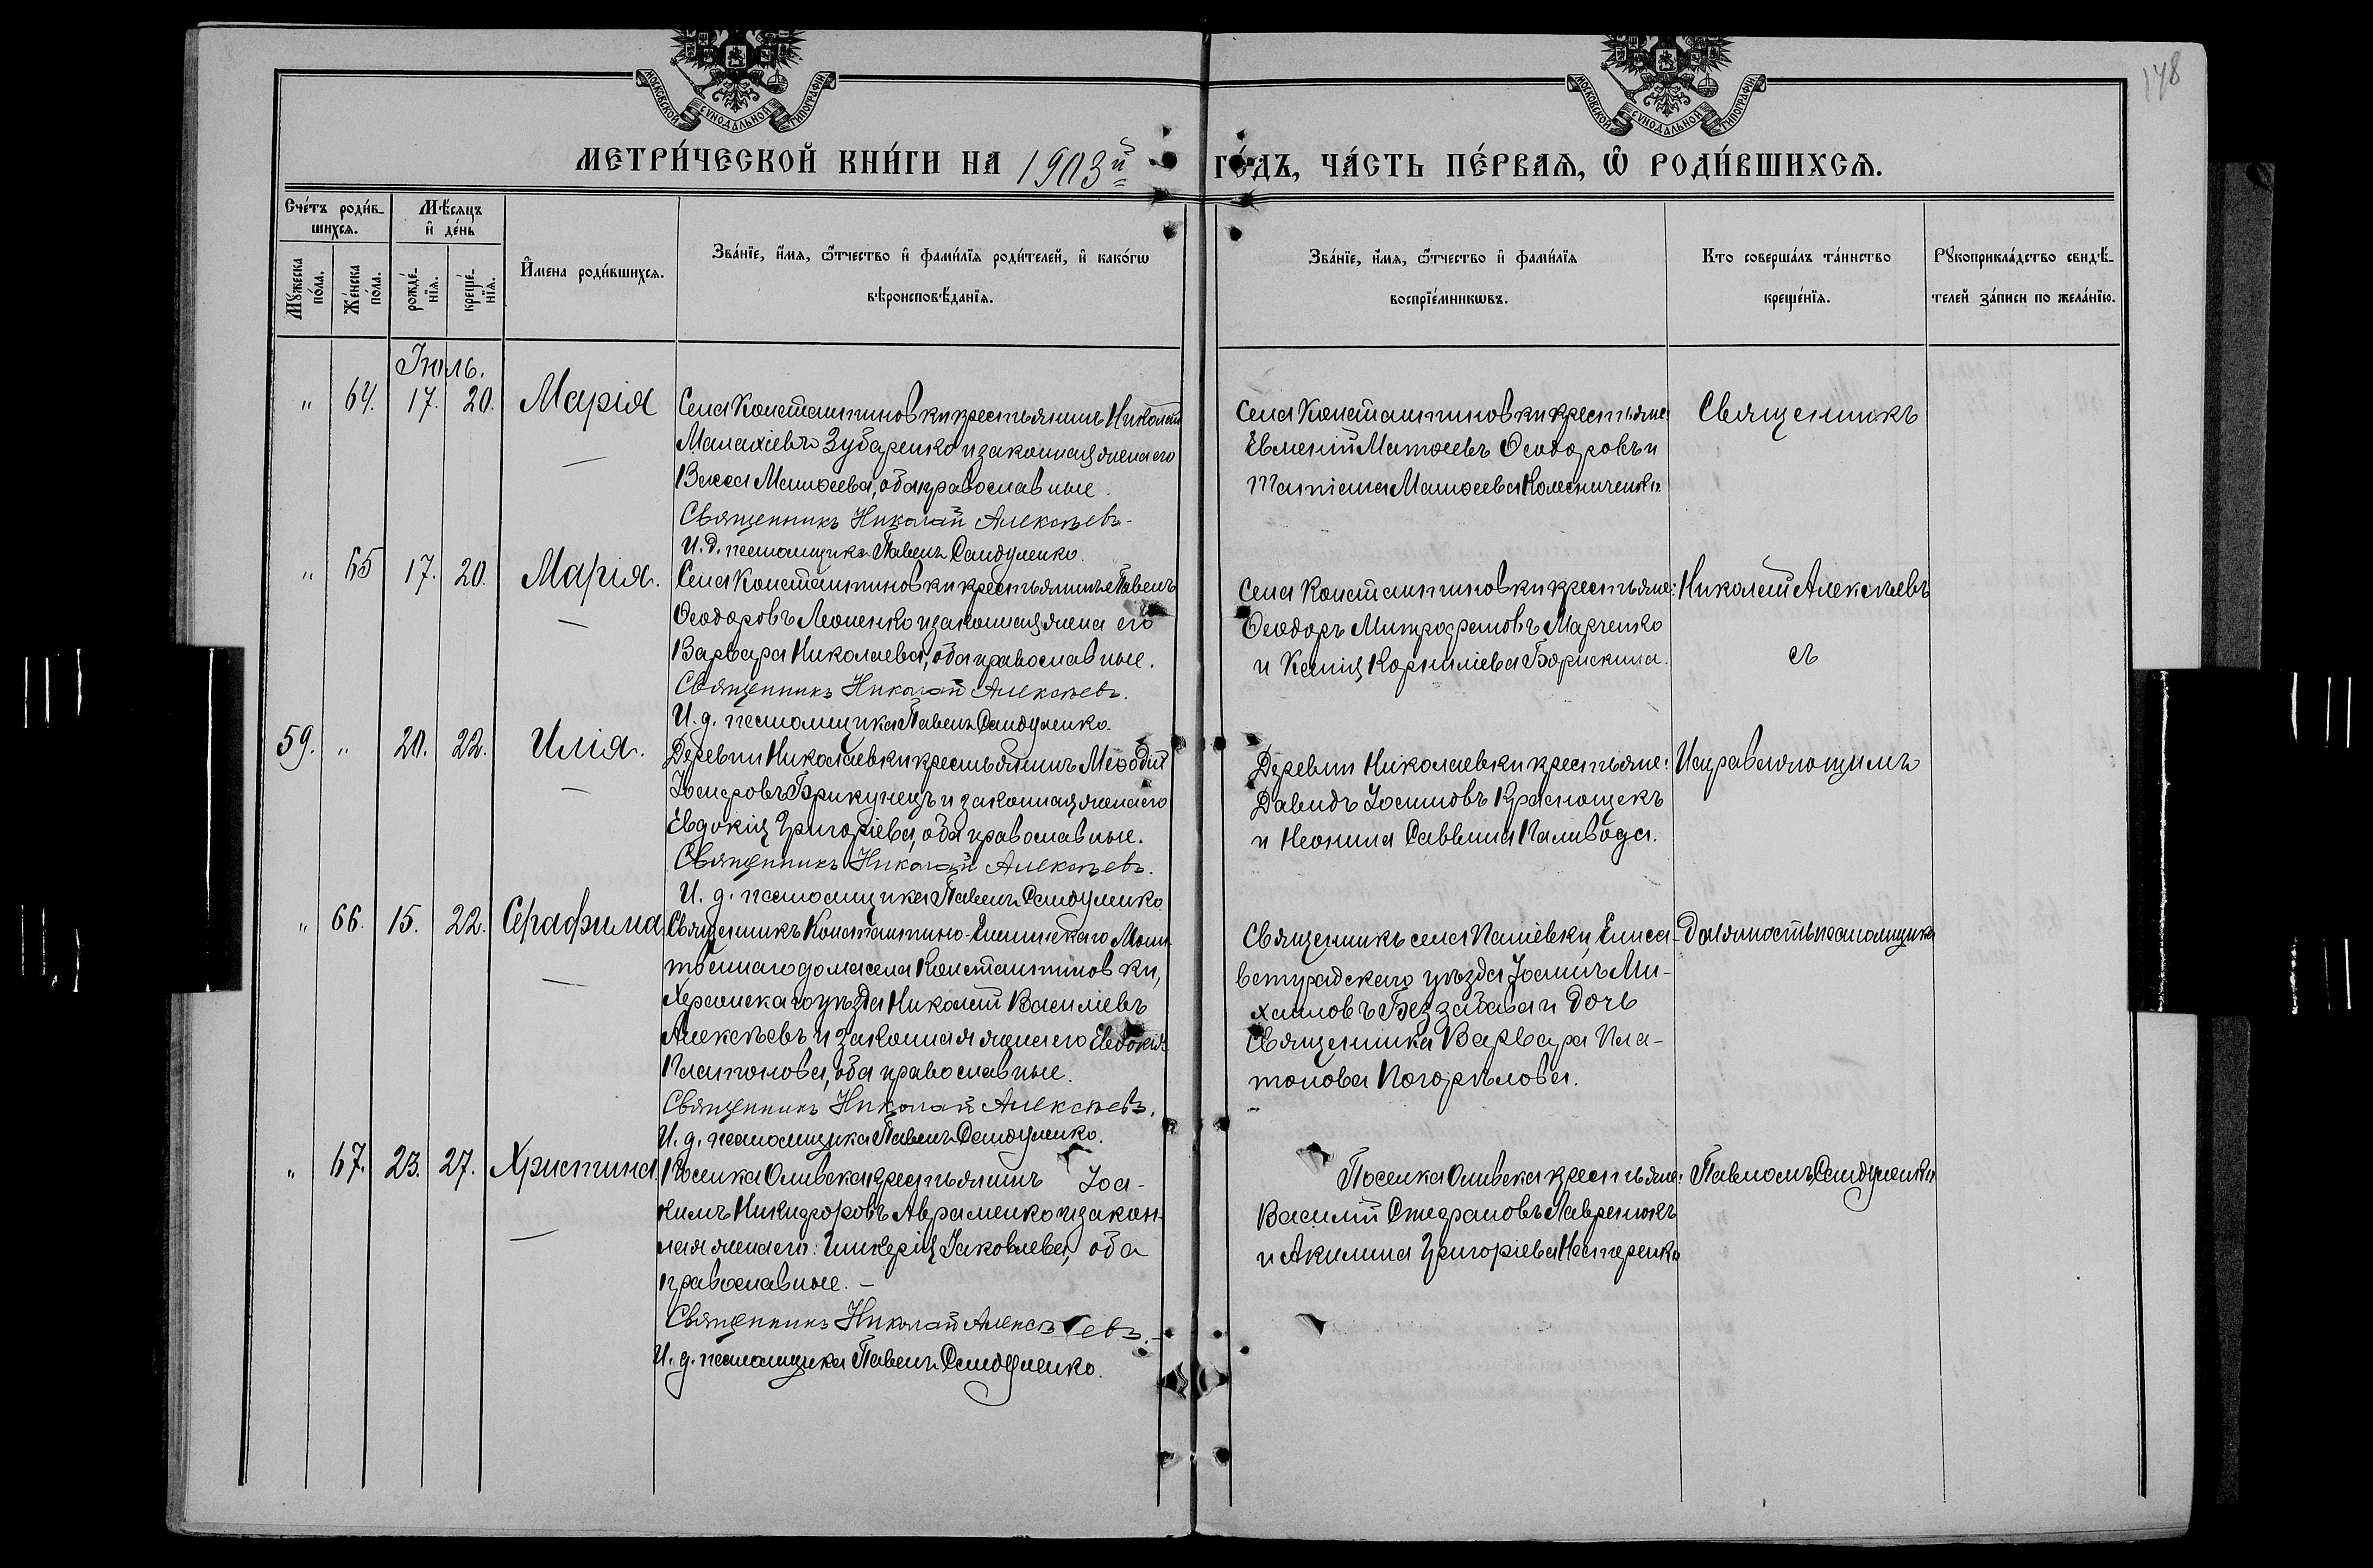 МОСКОВСКОЙ СУНОДАЛЬНОЙ ТИПОГРАФІИ
МОСКОВСКОЙ СУНОДАЛЬНОЙ ТИПОГРАФІИ
178
МЕТРИ́ЧЕСКОЙ КНИ́ГИ НА 1903й ГО́ДЪ, ЧА́СТЬ ПЕ́РВАѦ, Ѽ РОДИ́ВШИХСѦ.
Сче́тъ роди́в-
шихсѧ.
Мꙋжеска
по́ла.
Же́нска
по́ла.
Мѣ́сѧцъ
и҆ де́нь
рожде́-
нїѧ.
креще́-
нїѧ.
И҆мена роди́вшихсѧ.
Зва́нїе, и҆́мѧ, ѻ҆́тчество и҆ фами́лїѧ роди́телей, и҆ како́гѡ
вѣроисповѣ́данїѧ.
Зва́нїе, и҆́мѧ, ѻ҆́тчество и҆ фами́лїѧ
воспрїе́мникѡвъ.
Кто соверша́лъ та́инство
креще́нїѧ.
Рꙋкоприкла́дство свидѣ́-
телей за́писи по жела́нїю.
Іюль.
" 64. 17. 20. Марія
Села Константиновки крестьянинъ Николай
Малахіевъ Зубаренко и законная жена его
Васса Матѳеева, оба православные.
Священникъ Николай Алексѣевъ.
И. д. псаломщика Павелъ Самуленко.
Села Константиновки крестьяне:
Евменій Матѳеевъ Ѳеодоровъ и
Татіана Матѳеева Колесниченкова.
Священникъ
" 65 17. 20. Марія.
Села Константиновки крестьянинъ Павелъ
Ѳеодоровъ Леоненко и законная жена его
Варвара Николаева, оба православные.
Священникъ Николай Алексѣевъ.
И. д. псаломщика Павелъ Самуленко.
Села Константиновки крестьяне:
Ѳеодоръ Митрофановъ Марченко
и Ксенія Корниліева Борискина.
Николай Алексѣевъ
съ
59. " 20. 22. Илія.
Деревни Николаевки крестьянинъ Меѳодій
Іосифовъ Брикунецъ и законная жена его
Евдокія Григоріева, оба православные.
Священникъ Николай Алексѣевъ.
И. д. псаломщика Павелъ Самуленко
Деревни Николаевки крестьяне:
Давидъ Іосифовъ Краснощекъ
и Неонила Саввина Паливода.
Исправляющимъ
" 66. 15. 22. Серафима
Священникъ Константино-Еленинскаго Молит-
веннаго дома села Константиновки,
Херсонскаго уѣзда Николай Василіевъ
Алексѣевъ и законная жена его Евдокія
Платонова, оба православные.
Священникъ Николай Алексѣевъ.
И. д. псаломщика Павелъ Самуленко.
Священникъ села Паніевки, Елиса-
ветградскаго уѣзда Іоаннъ Ми-
хаиловъ Беззабава и дочь
Священника Варвара Пла-
тонова Погорѣлова.
Должность псаломщика
" 67. 23. 27. Христина.
Поселка Оливска крестьянинъ Іоа-
кимъ Никифоровъ Авраменко и закон-
ная жена его: Гликерія Іаковлева, оба
православные.
Священникъ Николай Алексѣевъ.
И. д. псаломщика Павелъ Самуленко.
Поселка Оливска крестьяне:
Василій Стефановъ Лавренюкъ
и Акилина Григоріева Нестеренко
Павломъ Самуленко